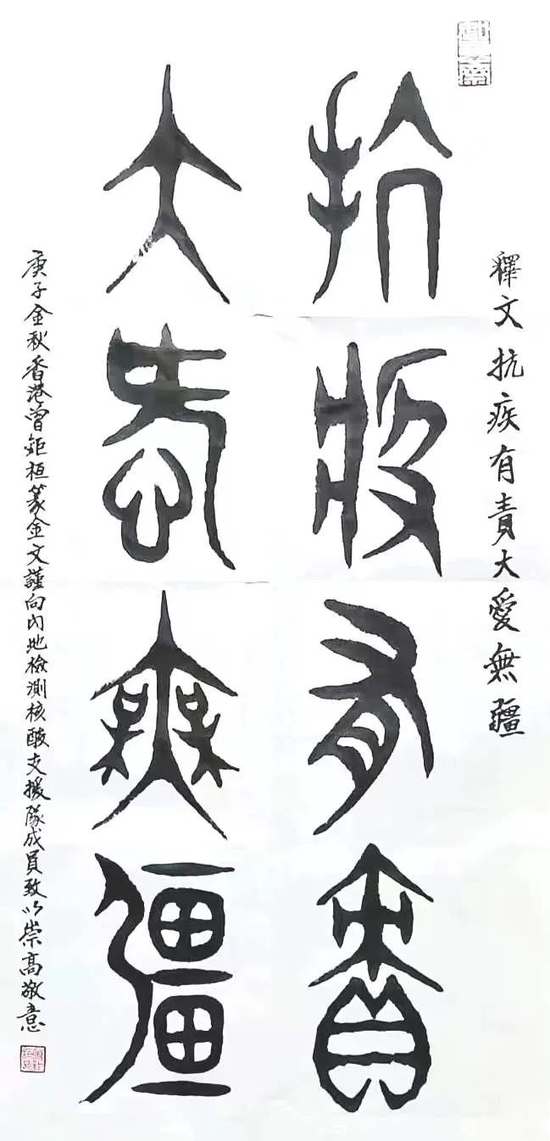 釋文 抗疫有責大愛無疆
抗疫有責
大愛無疆
庚子金秋香港曾鉅桓篆金文謹向內地檢測核酸支援隊成員致以崇高敬意